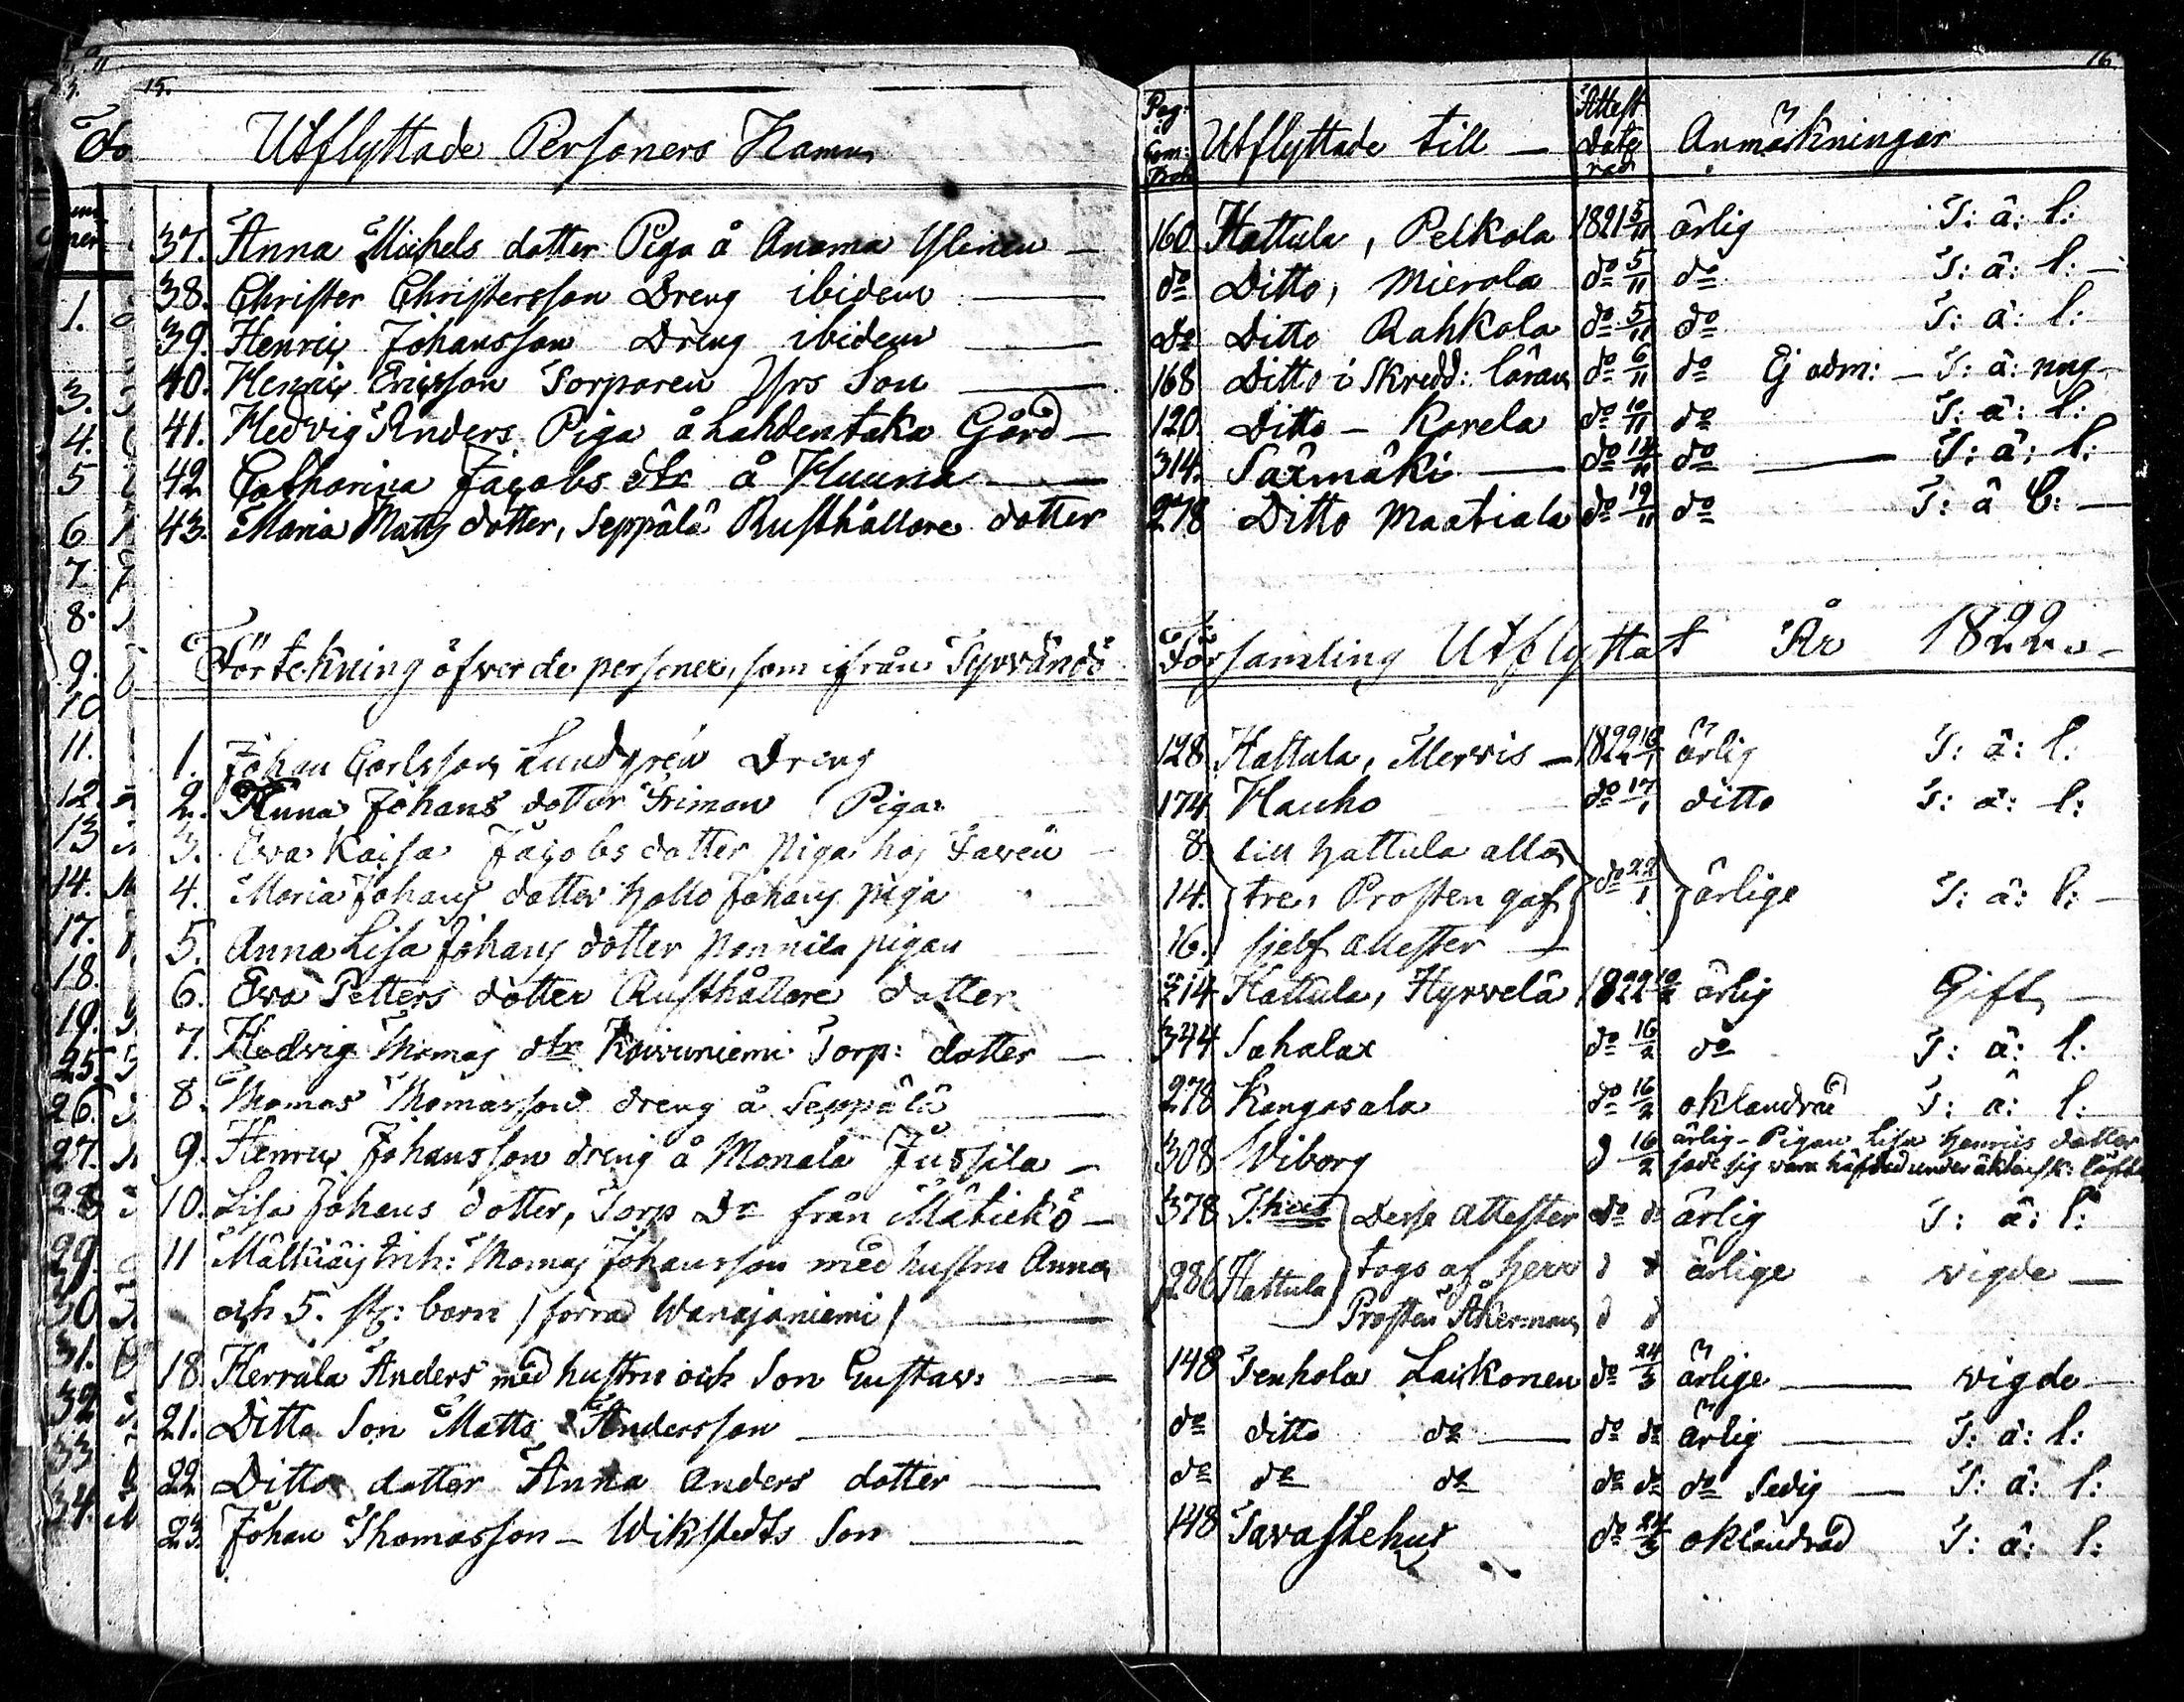 15. 16.
Utflyttade Personers Namn Pag: i Com: Bok Utflyttade till — Attest Date rad Anmärkningar
37. Anna Michels dotter Piga å Anoma Ylinen — 160 Hattula, Pelkola 1821 5/11 ärlig T: ä: l:
38. Christer Christersson Dreng ibidem — do Ditto, Mierola do 5/11 do T: ä: l: —
39. Henric Johansson Dreng ibidem — do Ditto Rahkola do 5/11 do T: ä: l:
40. Henric Ericsson Torparen Yrs Son — 168 Ditto i Skredd: läran do 6/11 do Ej adm: — T: ä: ung —
41. Hedvig Anders Piga å Lahdentaka Gård — 120 Ditto — Karela do 10/11 do T: ä: l:
42 Catharina Jacobs dtr å Huuna — 314. Saxmäki — do 14/11 do — T: ä: l:
43. Maria Matts dotter, Seppälä Rusthållare dotter 278 Ditto Maatiala do 19/11 do T: ä l: —
Förtekning öfver de personer, som ifrån Tyrvändö Församling Utflyttat År 1822. —
1. Johan Carlsson Lundgren Dreng 128 Hattula, Mervis — 1822 16/1 ärlig T: ä: l:
2. Anna Johans dotter Friman Piga 174 Hauho do 17/1 ditto T: ä: l:
3. Eva Kaisa Jacobs dotter piga hos Faven — 8. till Hattula alla
4. Maria Johans dotter Hollo Johans piga 14. tre, Prosten gaf do 22/1 ärlige T: ä: l: —
5. Anna Lisa Johans dotter Pennila pigan 16. sjelf attester —
6. Eva Petters dotter Rusthållare dotter 214 Hattula, Hyrvelä 1822 10/2 ärlig Gift —
7. Hedvig Thomas dtr Koivuniemi Torp: dotter — 344 Sahalax do 16/2 do T: ä: l:
8. Thomas Thomasson dreng å Seppälä 278 Kangasala do 16/2 oklandrad T: ä: l:
9. Henric Johansson dreng å Monala Jussila — 308 Wiborg d 16/2 ärlig — Pigan Lisa Henrics dotter
sade sig vara häfdad under äktensk: löfte
10. Lisa Johans dotter, Torp Dr från Mätickö — 378 Thus Desse attester do d ärlig T: ä: l:
11 Inh: Thomas Johansson med hustru Anna 286 Hattula togs af Herr d d ärlige vigde —
och 5. st: barn / förra Wanajaniemi / — Prosten Åkerman d d
18. Herrala Anders med hustru och Son Gustav: — 148 Tenhola Laikonen do 24/3 ärlige — vigde —
21. Ditto Son Matts Andersson — do ditto do — do do ärlig — T: ä: l:
22 Ditto dotter Anna Anders dotter — do do do do do do Sedig — T: ä: l:
23. Johan Thomasson — Wikstedts Son — 148 Tavastehus do 24/3 oklandrad T: ä: l: